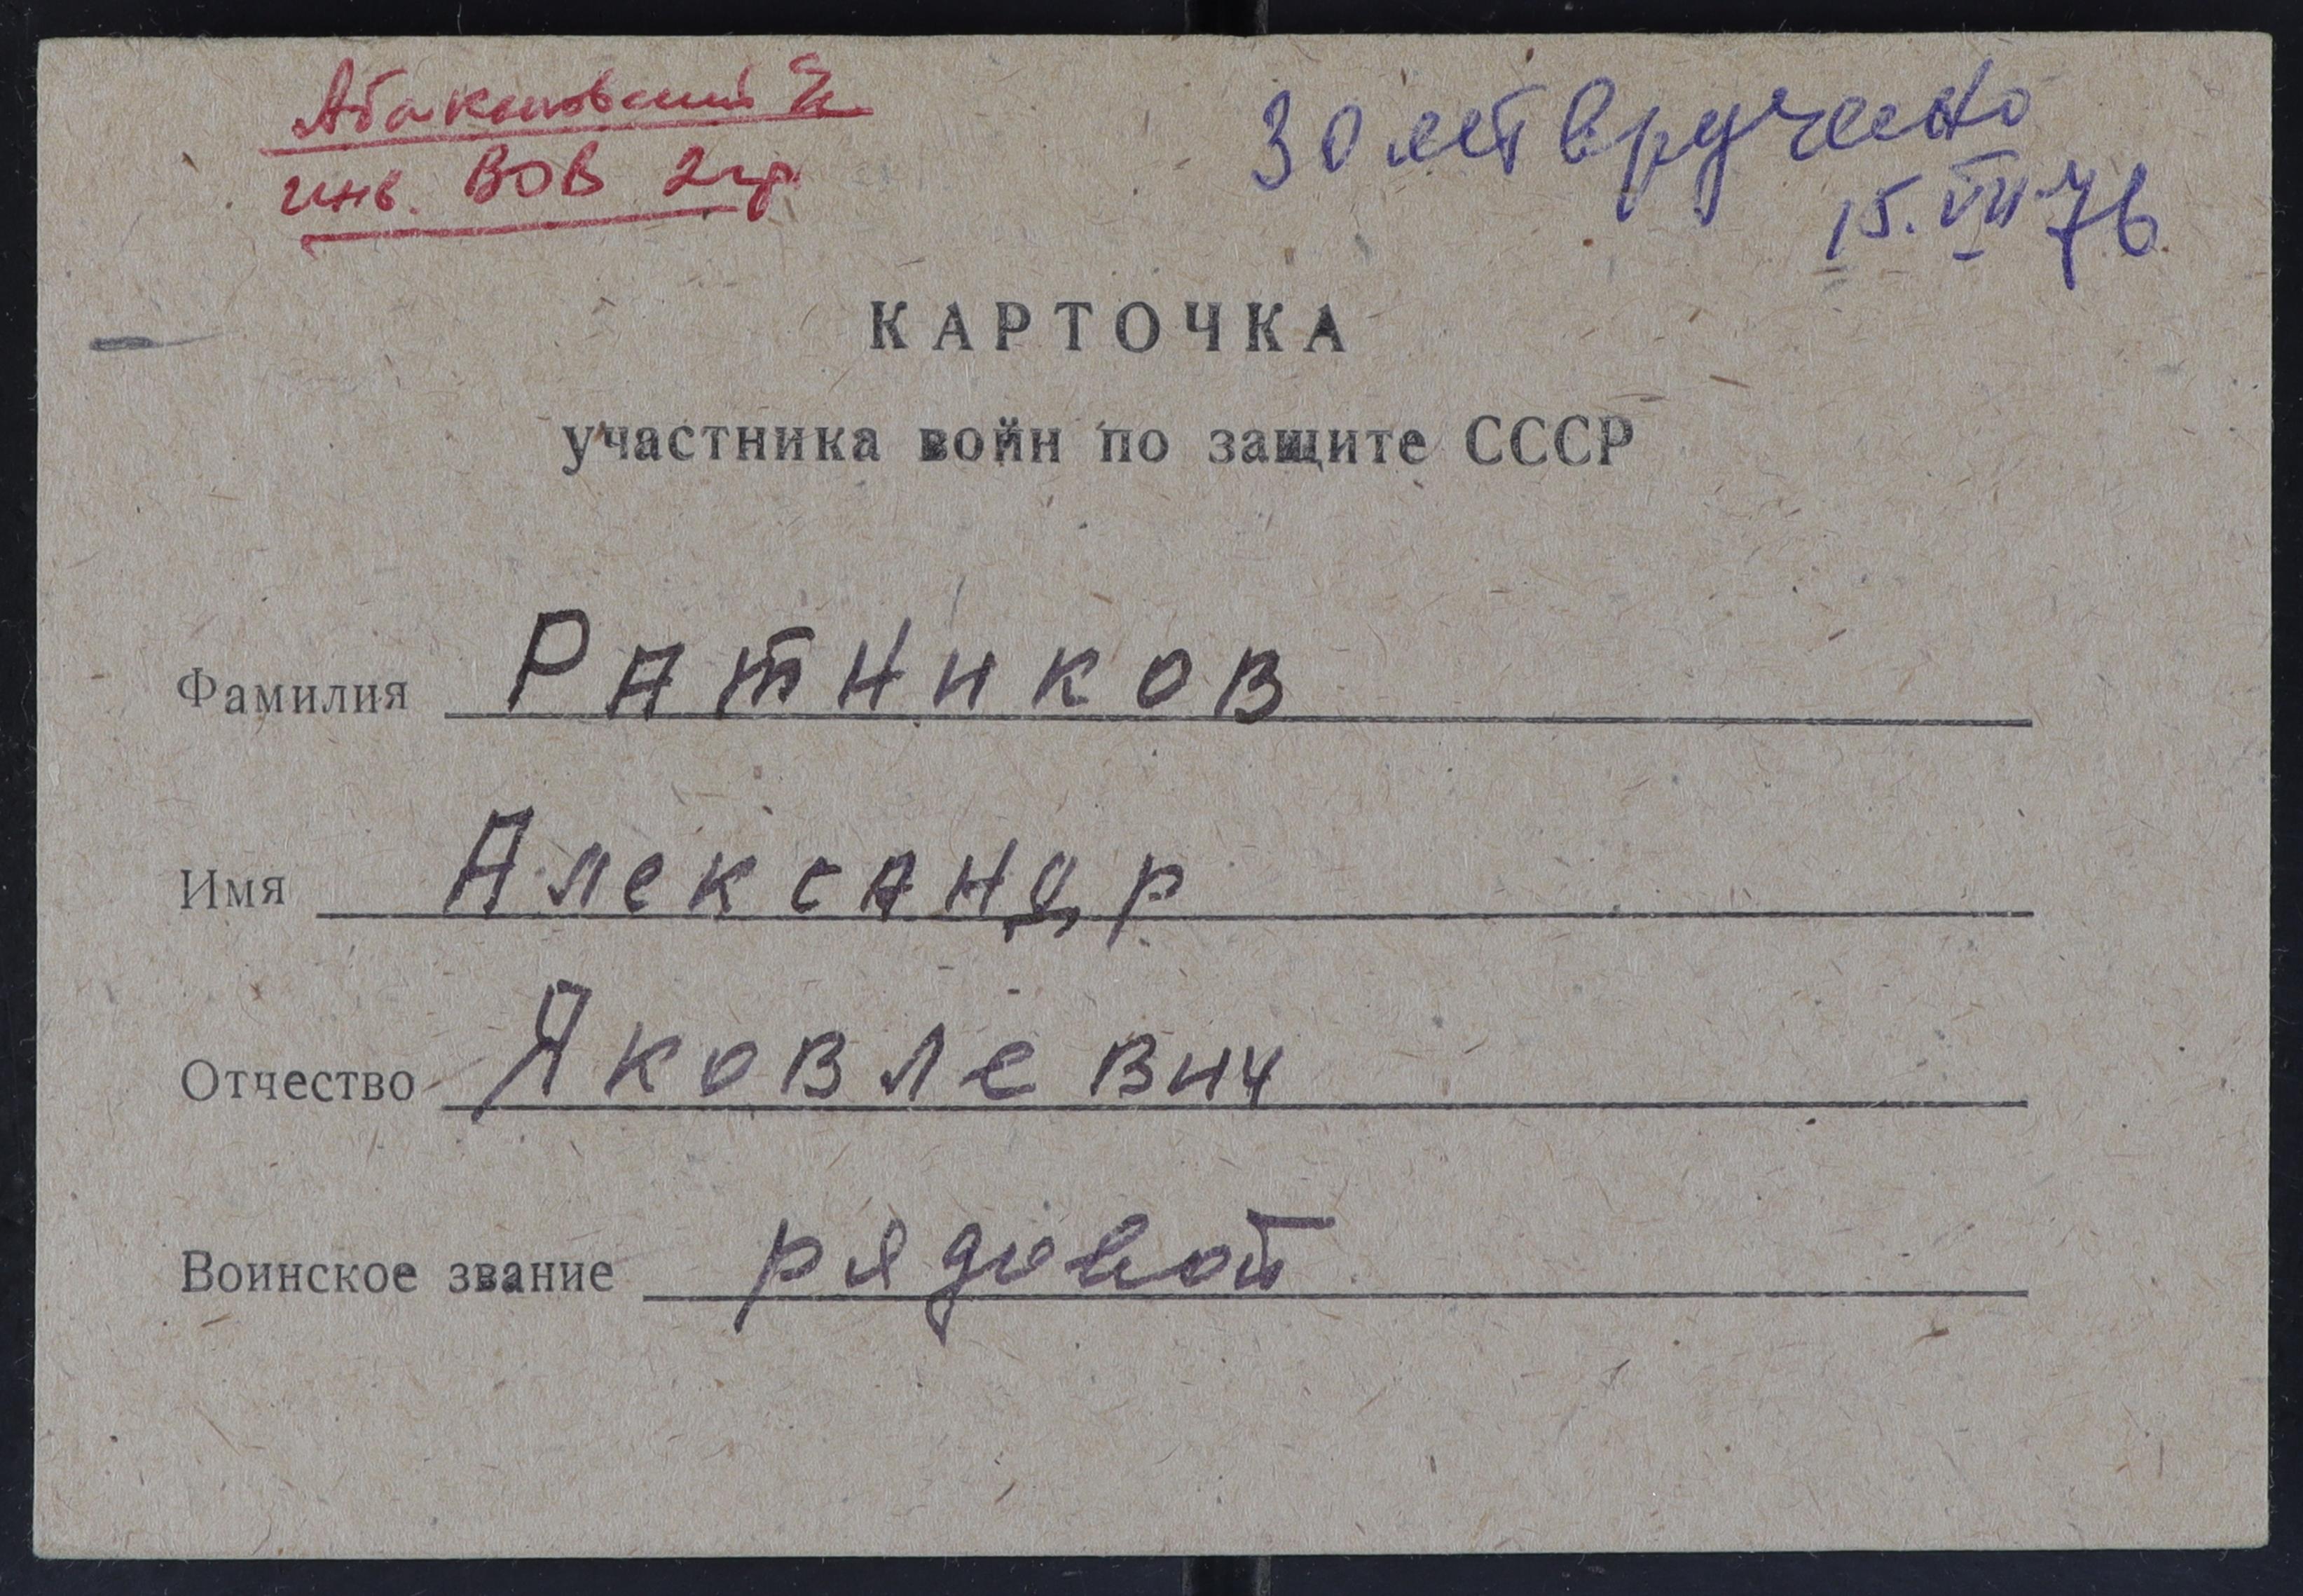 Абакановский
инв. ВОВ 2 гр
30 лет вручено
15.VII-76
КАРТОЧКА
участника войн по защите СССР
Фамилия Ратников
Имя Александр
Отчество Яковлевич
Воинское звание рядовой